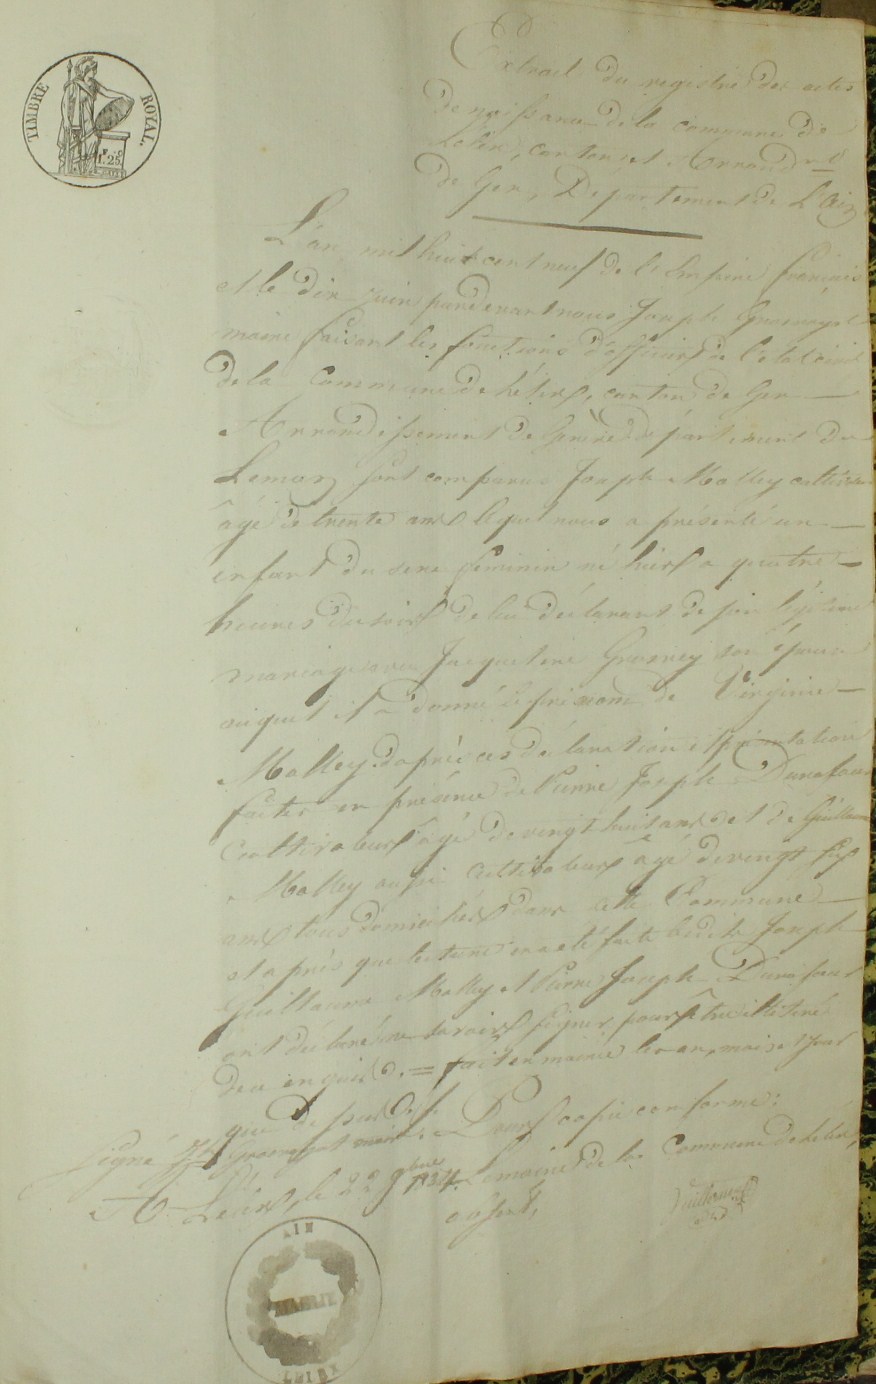 TIMBRE ROYAL.
1F. 25C
Extrait du registre des actes
de naissance de la commune de
Lelex, canton et Arrond.t
de Gex, Département de L'Ain
L'an mil huit cent neuf de l'Empire français
et le dix juin pardevant nous Joseph Grosrey
maire faisant les fonctions d'officier de l'état civil
de la Commune de Lélex, canton de Gex
Arrondissement de Genève département du
Leman sont comparus Joseph Malley cultivateur
âgé de trente ans lequel nous a présenté un
enfant du sexe féminin né hier a quatre
heures du soir de lui déclarant de son légitime
mariage avec Jacqueline Grosrey son épouse
auquel il a donné le prénom de Virginie
Malley. d'après ces déclaration et présentation
faites en présence de Pierre Joseph Durafour
Cultivateur âgé de vingt huit ans et de Guillaume
Malley aussi Cultivateur âgé de vingt six
ans tous domiciliés dans cette Commune
et après que lecture en a été faite ledit Joseph
Guillaume Malley et Pierre Joseph Durafour
ont déclaré ne savoir signer pour être illitéré
de ce enquis. = fait en mairie les an, mois et jour
que dessus
signé maire. Pour copie conforme:
A Lélex, le 22 9bre 1834. Le maire de la Commune de Lélex,
absent,
AIN
MAIRIE
LELEX